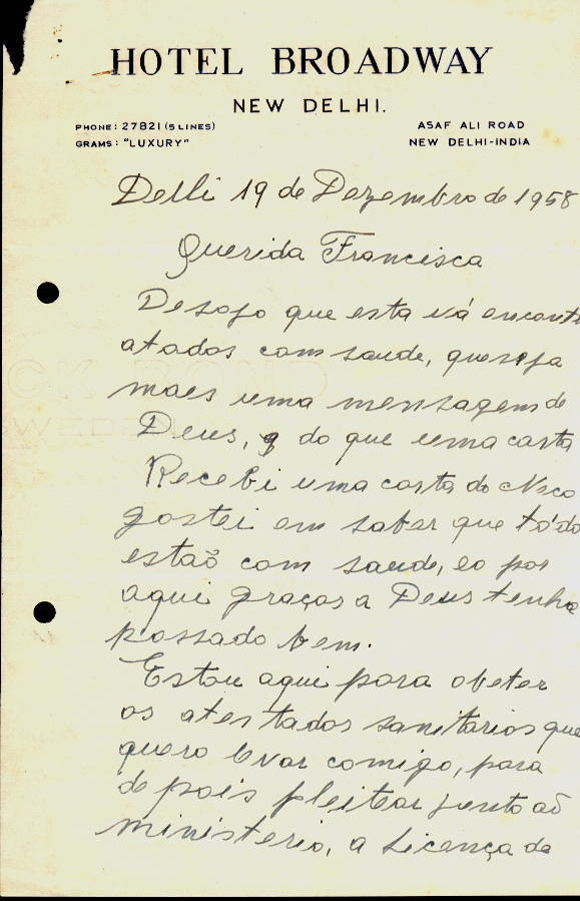 HOTEL BROADWAY
NEW DELHI.
PHONE: 27821 (5 LINES)
GRAMS: "LUXURY"
ASAF ALI ROAD
NEW DELHI-INDIA
Delli 19 de Dezembro de 1958
Querida Francisca
Desejo que esta vá encont
atados com saude, que seja
maes uma mensagem de
Deus, do que uma carta
Recebi uma carta do
gostei em saber que tôdo
estaõ com saude, eo por
aqui graças a Deus tenho
passado bem.
Estou aqui para obeter
os atestados sanitarios que
quero levar comigo, para
depois pleitear junto aõ
ministerio, a Licença de